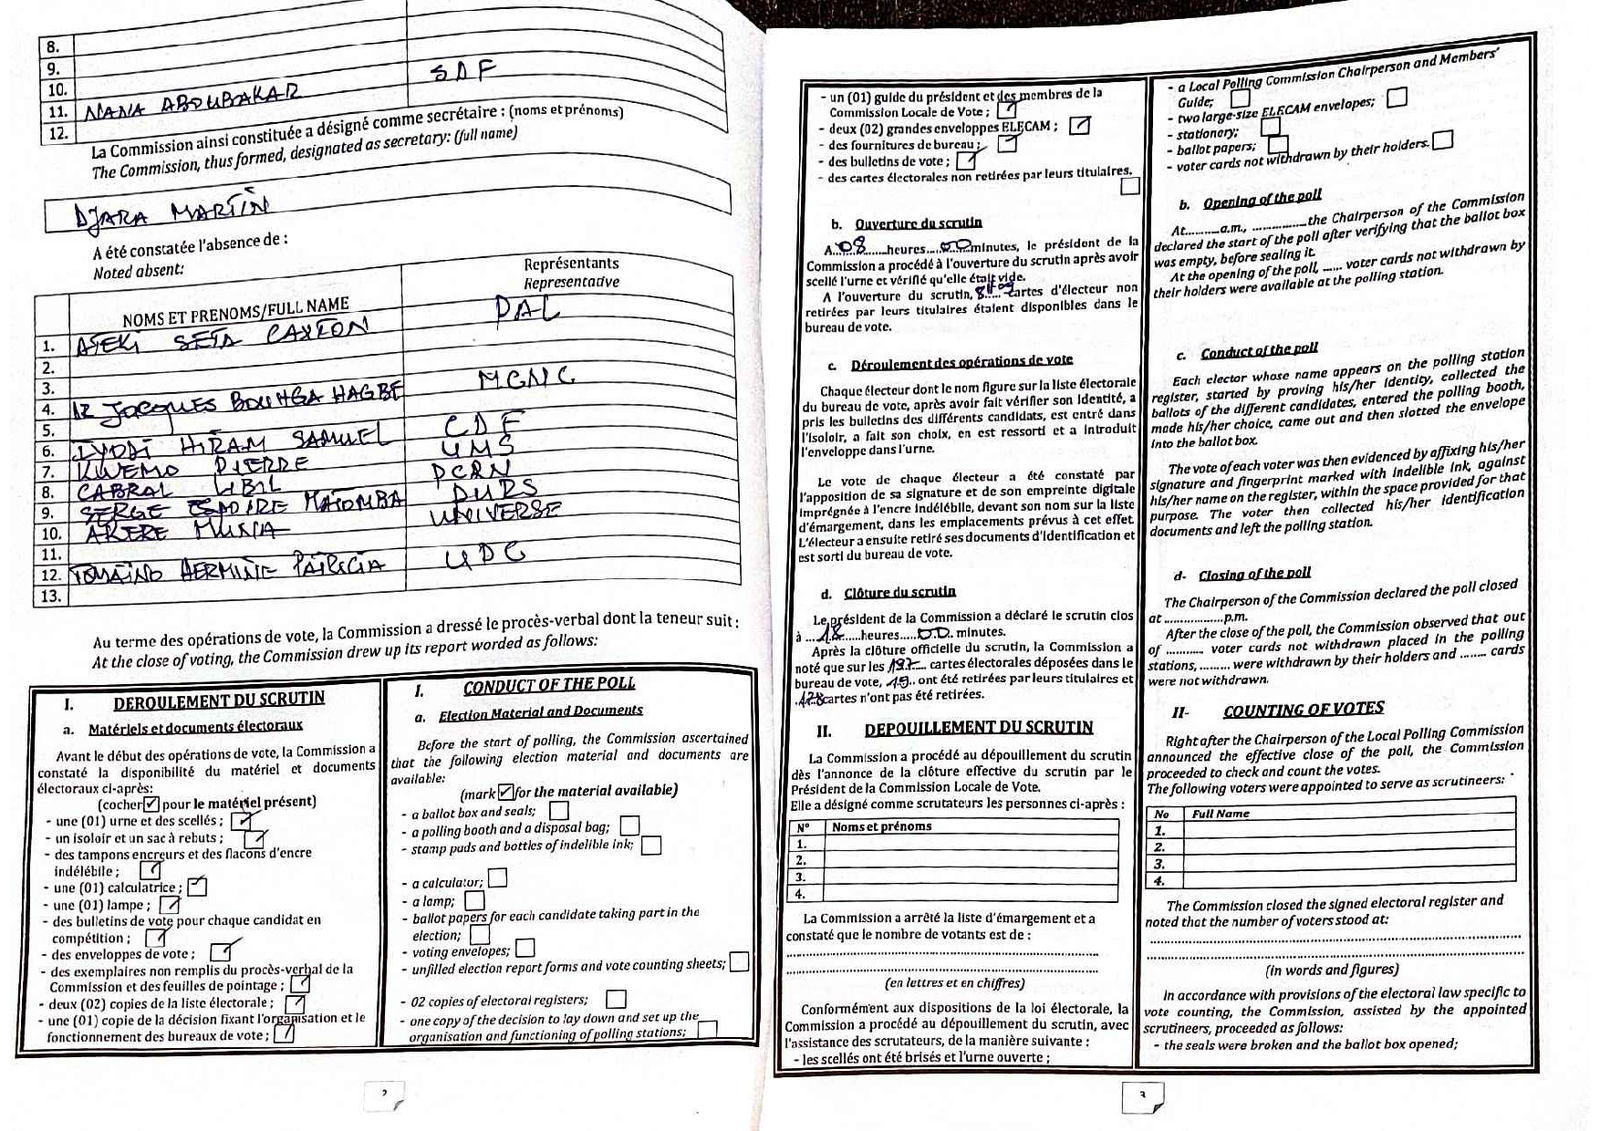 8.
9.
10.
11. NANA ABOUBAKAR SDF
12.
La Commission ainsi constituée a désigné comme secrétaire : (noms et prénoms)
The Commission, thus formed, designated as secretary: (full name)
DJARA MARTIN
A été constatée l'absence de :
Noted absent:
NOMS ET PRENOMS/FULL NAME
Représentants
Representative
1. ATEKI SETA CAXTON PAL
2.
3.
4. JACQUES BOUHGA HAGBE MCNC
5.
6. IYODI HIRAM SAMUEL CDF
7. KWEMO PIERRE UMS
8. CABRAL LIBII PCRN
9. SERGE ESPOIRE MATOMBA PURS
10. AKERE MUNA UNIVERSE
11.
12. TOMAINO HERMINE PATRICIA UDC
13.
Au terme des opérations de vote, la Commission a dressé le procès-verbal dont la teneur suit :
At the close of voting, the Commission drew up its report worded as follows:
I. DEROULEMENT DU SCRUTIN
a. Matériels et documents électoraux
Avant le début des opérations de vote, la Commission a
constaté la disponibilité du matériel et documents
électoraux ci-après:
(cocher ✓ pour le matériel présent)
- une (01) urne et des scellés ;
- un isoloir et un sac à rebuts ;
- des tampons encreurs et des flacons d'encre
indélébile ;
- une (01) calculatrice ;
- une (01) lampe ;
- des bulletins de vote pour chaque candidat en
compétition ;
- des enveloppes de vote ;
- des exemplaires non remplis du procès-verbal de la
Commission et des feuilles de pointage ;
- deux (02) copies de la liste électorale ;
- une (01) copie de la décision fixant l'organisation et le
fonctionnement des bureaux de vote ;
I. CONDUCT OF THE POLL
a. Election Material and Documents
Before the start of polling, the Commission ascertained
that the following election material and documents are
available:
(mark ✓ for the material available)
- a ballot box and seals;
- a polling booth and a disposal bag;
- stamp puds and bottles of indelible ink;
- a calculator;
- a lamp;
- ballot papers for each candidate taking part in the
election;
- voting envelopes;
- unfilled election report forms and vote counting sheets;
- 02 copies of electoral registers;
- one copy of the decision to lay down and set up the
organisation and functioning of polling stations;
2
- un (01) guide du président et des membres de la
Commission Locale de Vote ;
- deux (02) grandes enveloppes ELECAM ;
- des fournitures de bureau ;
- des bulletins de vote ;
- des cartes électorales non retirées par leurs titulaires.
b. Ouverture du scrutin
A..08......heures....00.minutes, le président de la
Commission a procédé à l'ouverture du scrutin après avoir
scellé l'urne et vérifié qu'elle était vide.
A l'ouverture du scrutin, cartes d'électeur non
retirées par leurs titulaires étaient disponibles dans le
bureau de vote.
c. Déroulement des opérations de vote
Chaque électeur dont le nom figure sur la liste électorale
du bureau de vote, après avoir fait vérifier son identité, a
pris les bulletins des différents candidats, est entré dans
l'isoloir, a fait son choix, en est ressorti et a introduit
l'enveloppe dans l'urne.
Le vote de chaque électeur a été constaté par
l'apposition de sa signature et de son empreinte digitale
imprégnée à l'encre indélébile, devant son nom sur la liste
d'émargement, dans les emplacements prévus à cet effet.
L'électeur a ensuite retiré ses documents d'identification et
est sorti du bureau de vote.
d. Clôture du scrutin
Le président de la Commission a déclaré le scrutin clos
à ...18......heures.....00. minutes.
Après la clôture officielle du scrutin, la Commission a
noté que sur les 197.... cartes électorales déposées dans le
bureau de vote, .19.. ont été retirées par leurs titulaires et
.178 cartes n'ont pas été retirées.
II. DEPOUILLEMENT DU SCRUTIN
La Commission a procédé au dépouillement du scrutin
dès l'annonce de la clôture effective du scrutin par le
Président de la Commission Locale de Vote.
Elle a désigné comme scrutateurs les personnes ci-après :
N° Noms et prénoms
1.
2.
3.
4.
La Commission a arrêté la liste d'émargement et a
constaté que le nombre de votants est de :
(en lettres et en chiffres)
Conformément aux dispositions de la loi électorale, la
Commission a procédé au dépouillement du scrutin, avec
l'assistance des scrutateurs, de la manière suivante :
- les scellés ont été brisés et l'urne ouverte ;
- a Local Polling Commission Chairperson and Members'
Guide;
- two large-size ELECAM envelopes;
- stationery;
- ballot papers;
- voter cards not withdrawn by their holders.
b. Opening of the poll
At..........a.m., .................the Chairperson of the Commission
declared the start of the poll after verifying that the ballot box
was empty, before sealing it.
At the opening of the poll, ...... voter cards not withdrawn by
their holders were available at the polling station.
c. Conduct of the poll
Each elector whose name appears on the polling station
register, started by proving his/her identity, collected the
ballots of the different candidates, entered the polling booth,
made his/her choice, came out and then slotted the envelope
into the ballot box.
The vote of each voter was then evidenced by affixing his/her
signature and fingerprint marked with indelible ink, against
his/her name on the register, within the space provided for that
purpose. The voter then collected his/her identification
documents and left the polling station.
d- Closing of the poll
The Chairperson of the Commission declared the poll closed
at ..................p.m.
After the close of the poll, the Commission observed that out
of ........... voter cards not withdrawn placed in the polling
stations, ......... were withdrawn by their holders and ........ cards
were not withdrawn.
II- COUNTING OF VOTES
Right after the Chairperson of the Local Polling Commission
announced the effective close of the poll, the Commission
proceeded to check and count the votes.
The following voters were appointed to serve as scrutineers:
No Full Name
1.
2.
3.
4.
The Commission closed the signed electoral register and
noted that the number of voters stood at:
(in words and figures)
In accordance with provisions of the electoral law specific to
vote counting, the Commission, assisted by the appointed
scrutineers, proceeded as follows:
- the seals were broken and the ballot box opened;
3